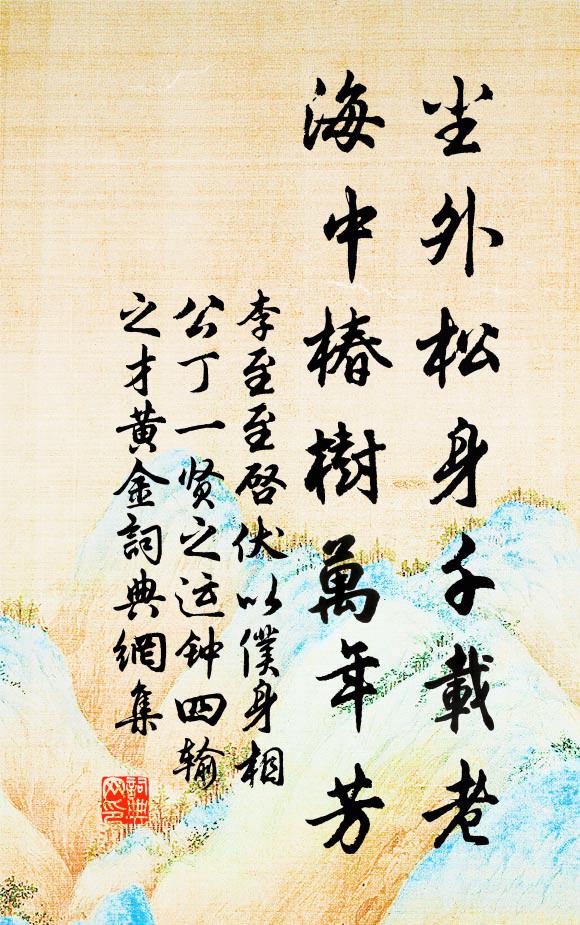 尘外松身千載老
海中椿樹萬年芳
李至至啓伏以僕身相
公丁一贤之运钟四输
之才黄金詞典網集
詞典网印